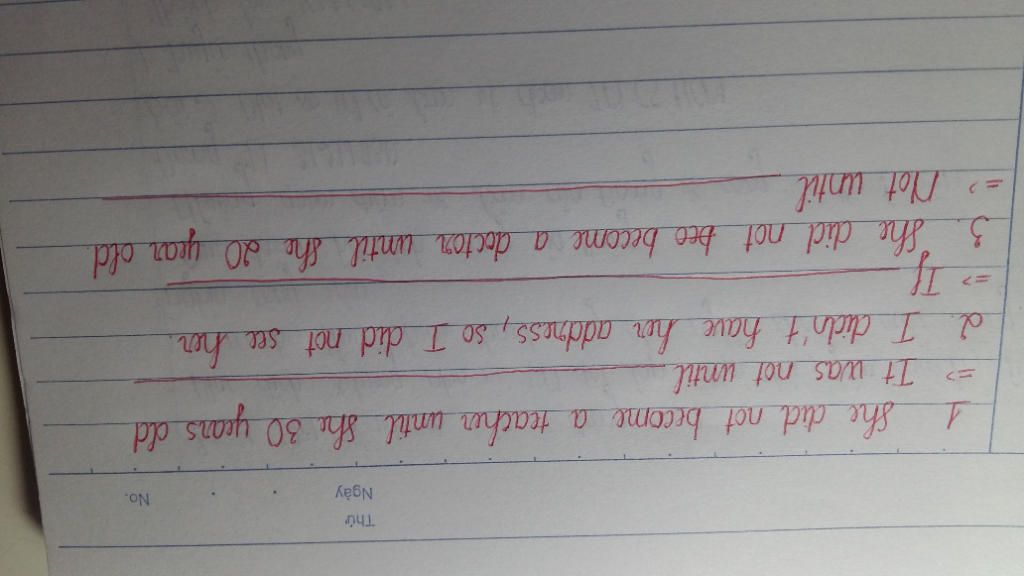 Thứ
Ngày No.
1 She did not become a teacher until she 30 years old
=> It was not until
2. I didn't have her address, so I did not see her.
=> If
3. She did not beo become a doctor until she 20 year old.
=> Not until